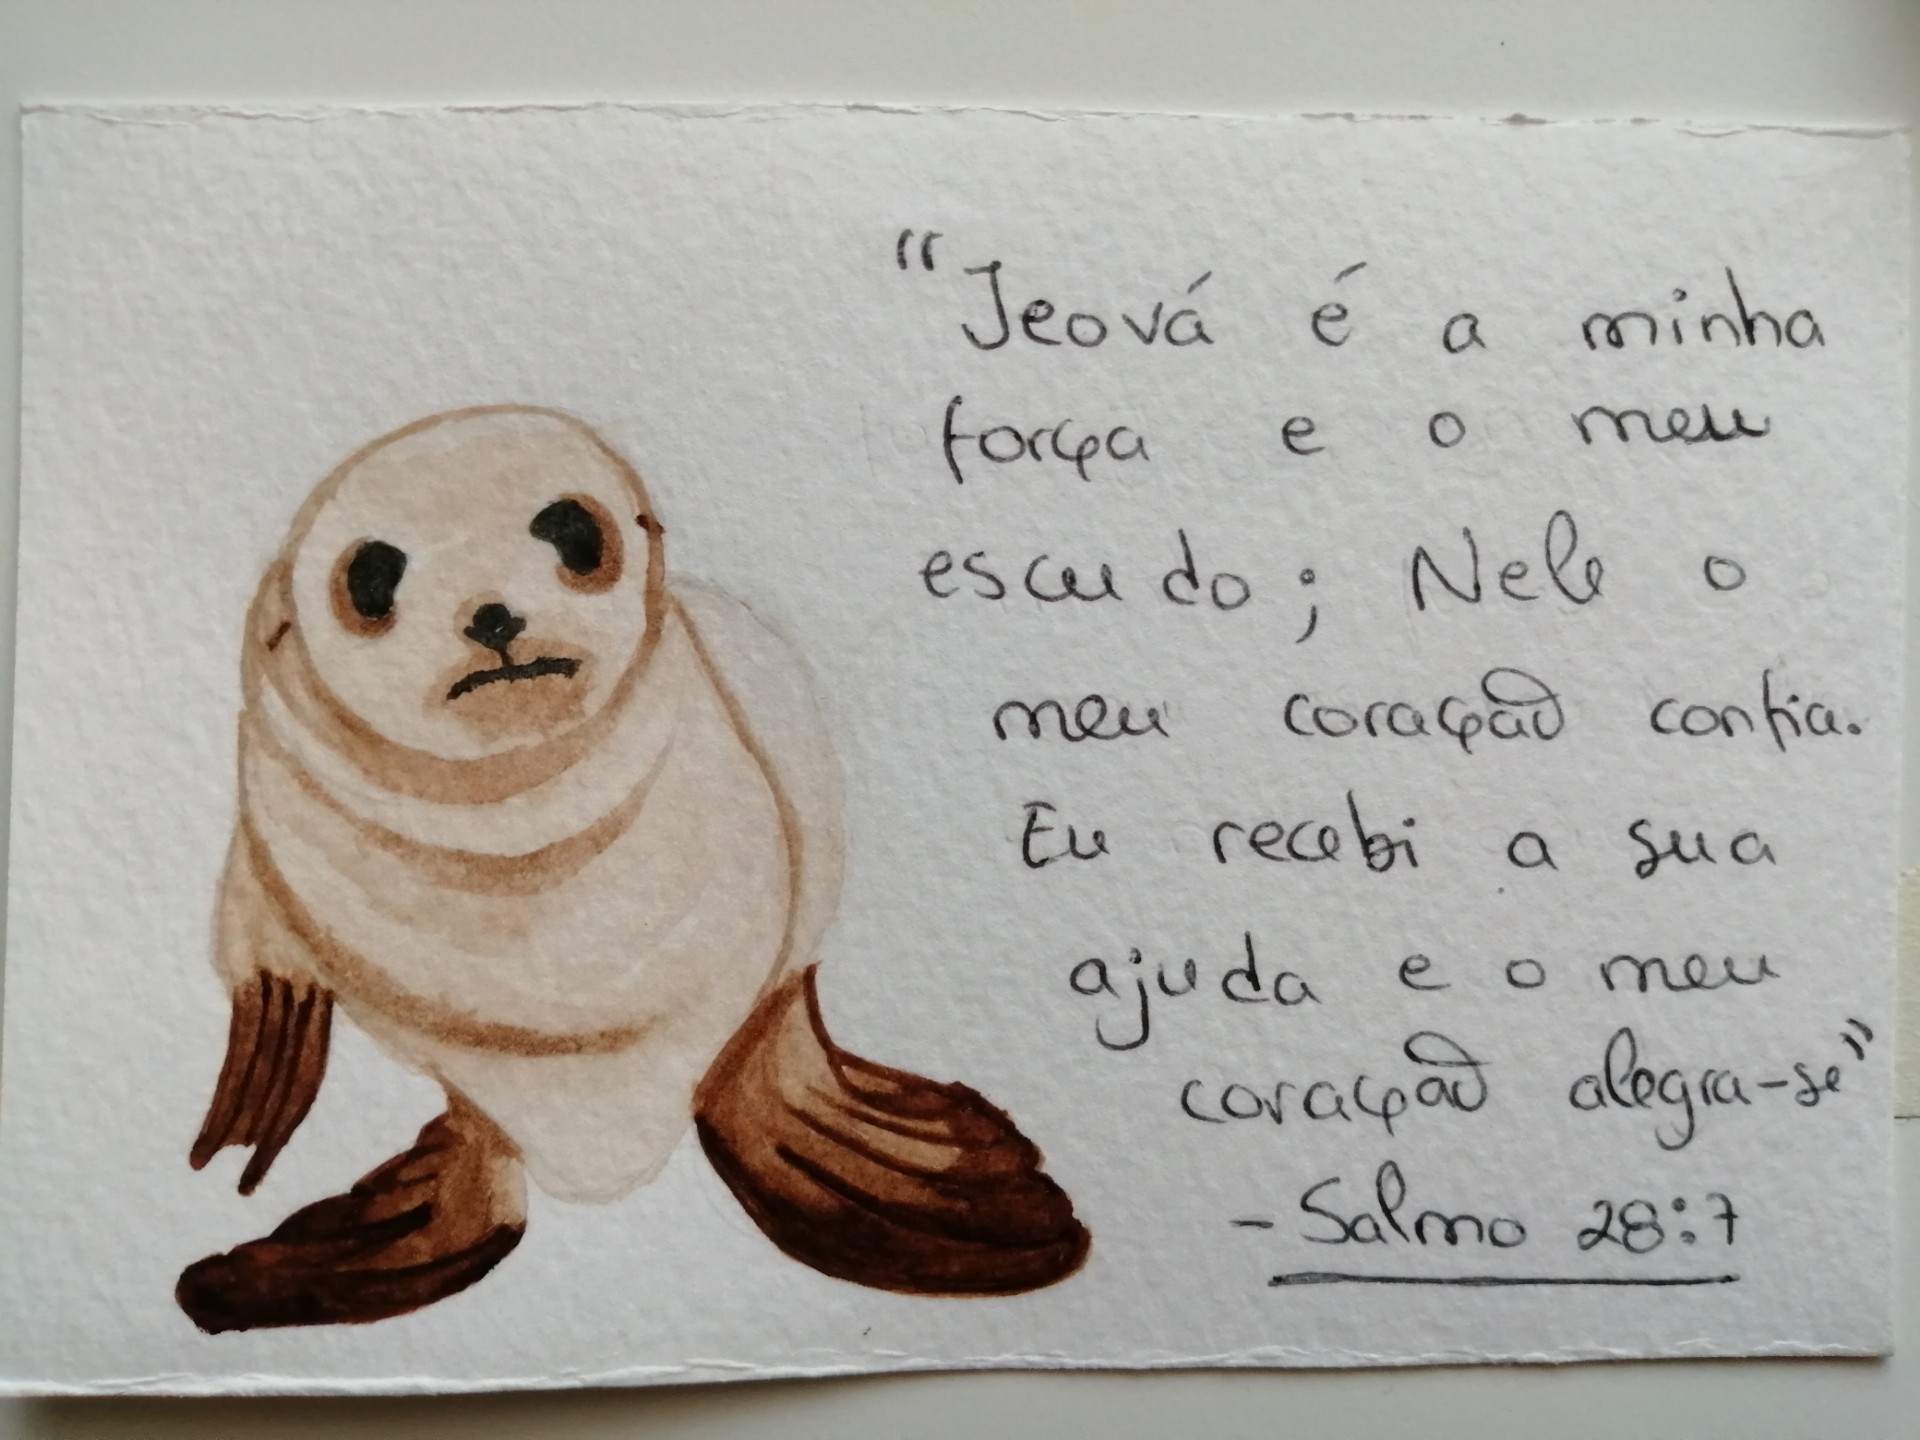 "Jeová é a minha
força e o meu
escudo; Nele o
meu coração confia.
Eu recebi a sua
ajuda e o meu
coração alegra-se"
- Salmo 28:7